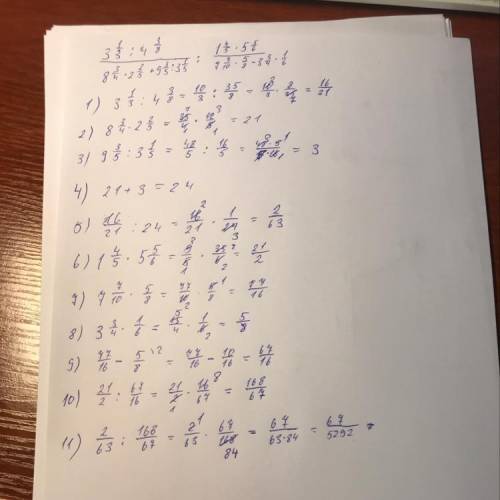 (3 1/3 : 4 3/8) / (8 3/4 · 2 2/5 + 9 3/5 : 3 1/5) : (1 4/5 · 5 5/6) / (7 7/10 · 5/8 - 3 3/4 · 1/6)
1) 3 1/3 : 4 3/8 = 10/3 : 35/8 = 10/3 · 8/35 = 16/21
2) 8 3/4 · 2 2/5 = 35/4 · 12/5 = 21
3) 9 3/5 : 3 1/5 = 48/5 : 16/5 = 48·5/5·16 = 3
4) 21 + 3 = 24
5) 16/21 : 24 = 16/21 · 1/24 = 2/63
6) 1 4/5 · 5 5/6 = 9/5 · 35/6 = 21/2
7) 7 7/10 · 5/8 = 77/10 · 5/8 = 77/16
8) 3 3/4 · 1/6 = 15/4 · 1/6 = 5/8
9) 77/16 - 5/8 = 77/16 - 10/16 = 67/16
10) 21/2 : 67/16 = 21/2 · 16/67 = 168/67
11) 2/63 : 168/67 = 2/63 · 67/168 = 67/63·84 = 67/5292 =